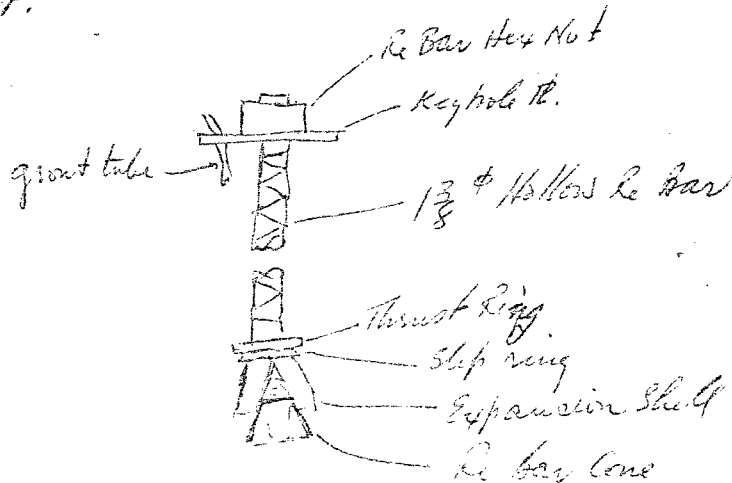 Re Bar Hex Nut
Keyhole Pl.
grout tube
1 3/8 ϕ Hollow Re Bar
Thrust Ring
Slip ring
Expansion Shell
Re bar Cone